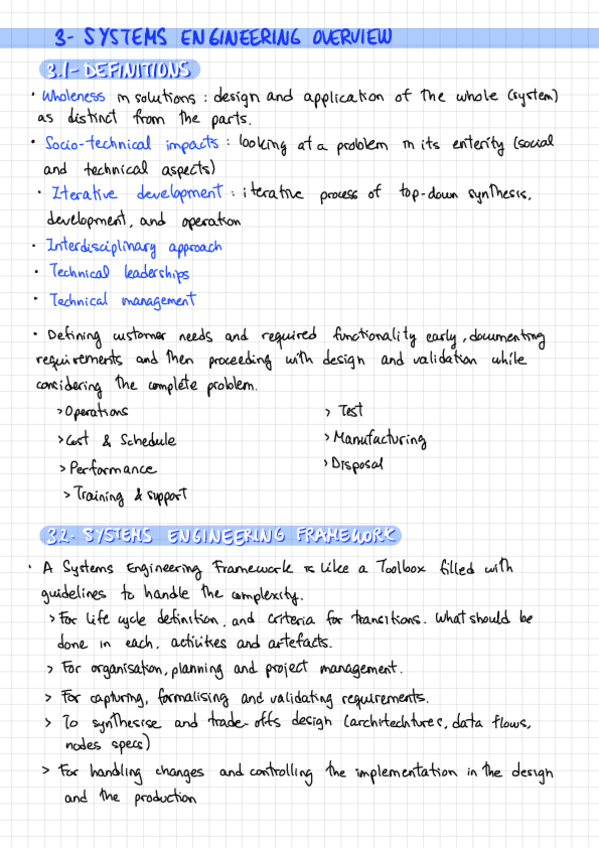 3- SYSTEMS ENGINEERING OVERVIEW
3.1- DEFINITIONS
· Wholeness in solutions : design and application of the whole (system)
as distinct from the parts.
· Socio-technical impacts : looking at a problem in its enterity (social
and technical aspects)
· Iterative development : iterative process of top-down synthesis,
development, and operation
· Interdisciplinary approach
· Technical leaderships
· Technical management
· Defining customer needs and required functionality early, documenting
requirements and then proceeding with design and validation while
considering the complete problem.
> Operations
> Cost & Schedule
> Performance
> Training & support
> Test
> Manufacturing
> Disposal
3.2- SYSTEMS ENGINEERING FRAMEWORK
· A Systems Engineering Framework is like a Toolbox filled with
guidelines to handle the complexity.
> For life cycle definition, and criteria for transitions. What should be
done in each, activities and artefacts.
> For organisation, planning and project management.
> For capturing, formalising and validating requirements.
> To synthesise and trade-offs design (architechtures, data flows,
nodes specs)
> For handling changes and controlling the implementation in the design
and the production